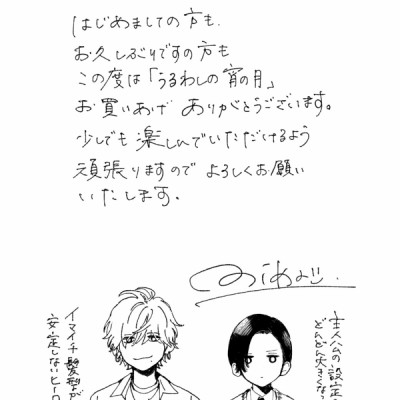 はじめましての方も
お久しぶりですの方も
この度は「うるわしの宵の月」
お買いあげ ありがとうございます。
少しでも楽しんでいただけるよう
頑張りますので よろしくお願い
いたします。
主人公の設定
どんどん大きくな
イマイチ髪型が
安定しないヒーロ